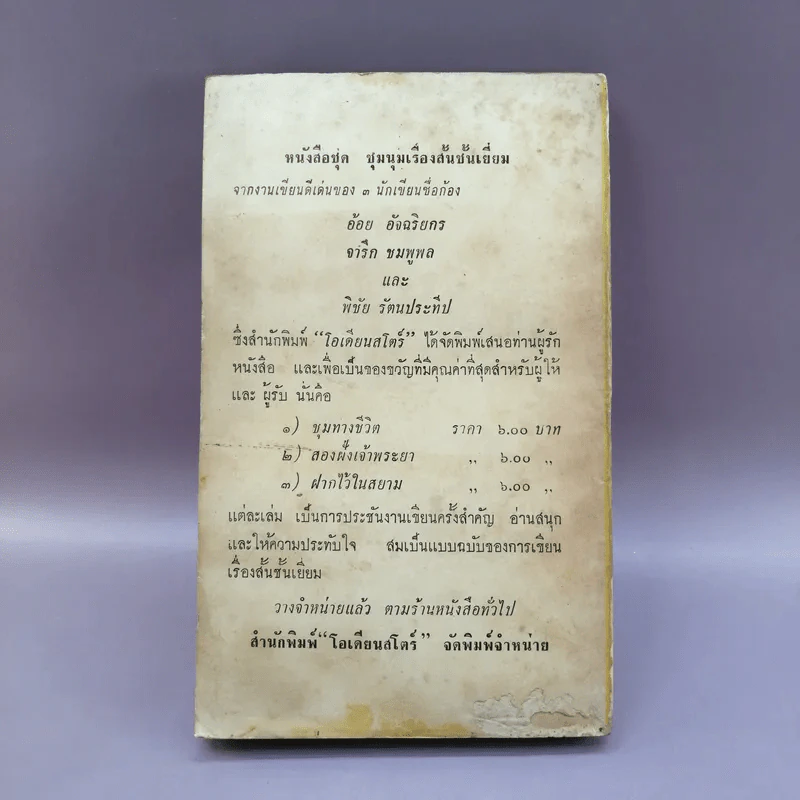 หนังสือชุด ชุมนุมเรื่องสั้นชั้นเยี่ยม
จากงานเขียนดีเด่นของ ๓ นักเขียนชื่อก้อง
อ้อย อัจฉริยกร
จารึก ชมพูพล
และ
พิชัย รัตนประทีป
ซึ่งสำนักพิมพ์ “โอเดียนสโตร์” ได้จัดพิมพ์เสนอท่านผู้รัก
หนังสือ และเพื่อเป็นของขวัญที่มีคุณค่าที่สุดสำหรับผู้ให้
และ ผู้รับ นั่นคือ
๑) ขุมทางชีวิต ราคา ๖.๐๐ บาท
๒) สองฝั่งเจ้าพระยา ,, ๖.๐๐ ,,
๓) ฝากไว้ในสยาม ,, ๖.๐๐ ,,
แต่ละเล่ม เป็นการประชันงานเขียนครั้งสำคัญ อ่านสนุก
และให้ความประทับใจ สมเป็นแบบฉบับของการเขียน
เรื่องสั้นชั้นเยี่ยม
วางจำหน่ายแล้ว ตามร้านหนังสือทั่วไป
สำนักพิมพ์ “โอเดียนสโตร์” จัดพิมพ์จำหน่าย